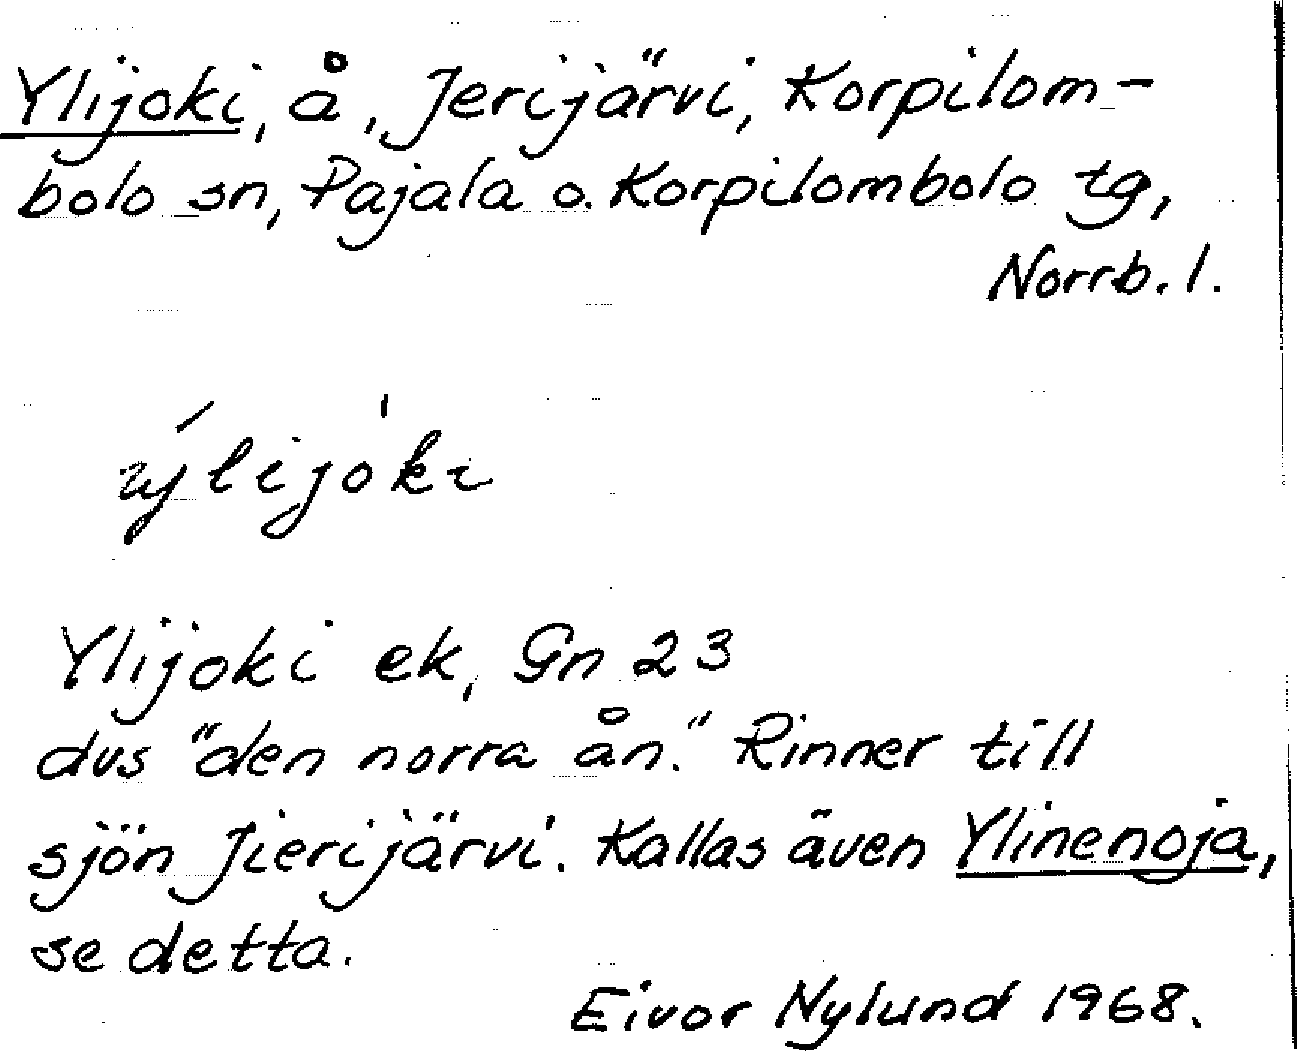 Ylijoki, å, Jerijärvi, Korpilom-
bolo sn, Pajala o. Korpilombolo tg,
Norrb. l.
ýlijòkι
Ylijoki ek, Gn 23
dvs "den norra ån." Rinner till
sjön Jierijärvi. Kallas även Ylinenoja,
se detta.
Eivor Nylund 1968.